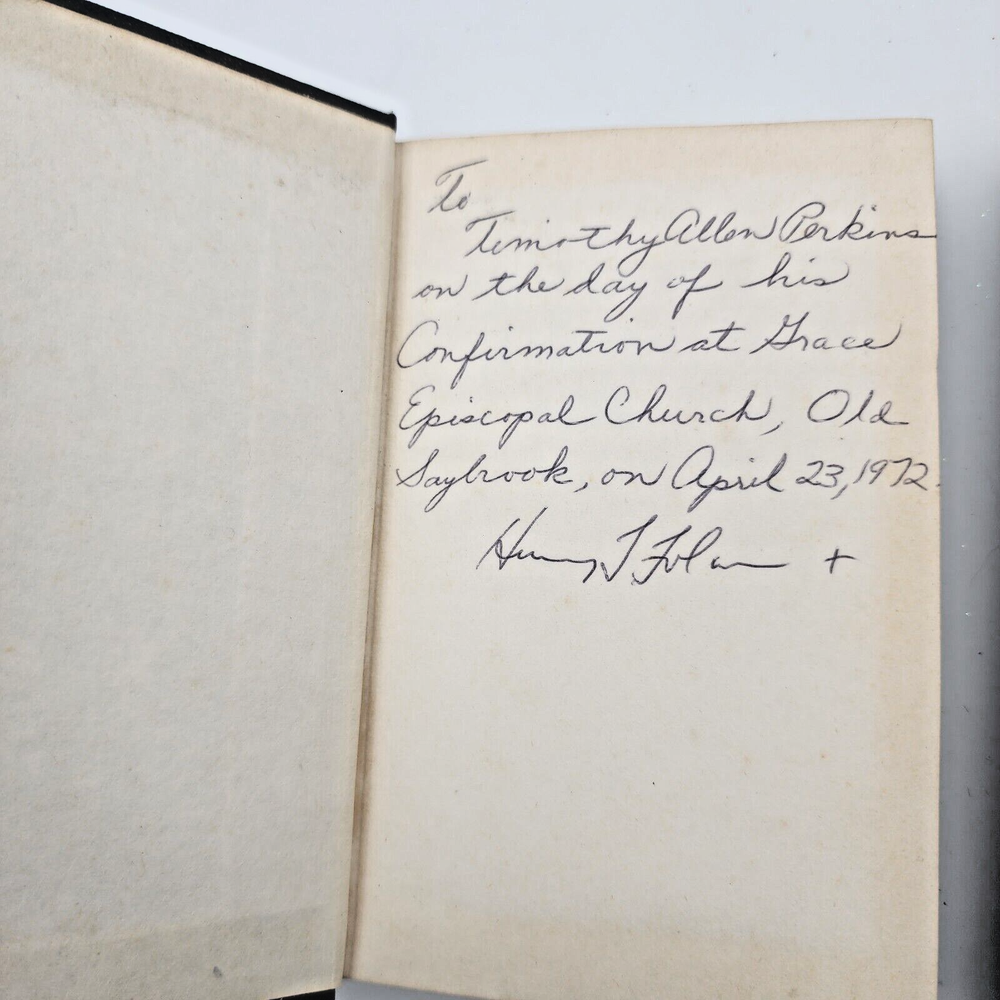 To
Timothy Allen Perkins
on the day of his
Confirmation at Grace
Episcopal Church, Old
Saybrook, on April 23, 1972.
+